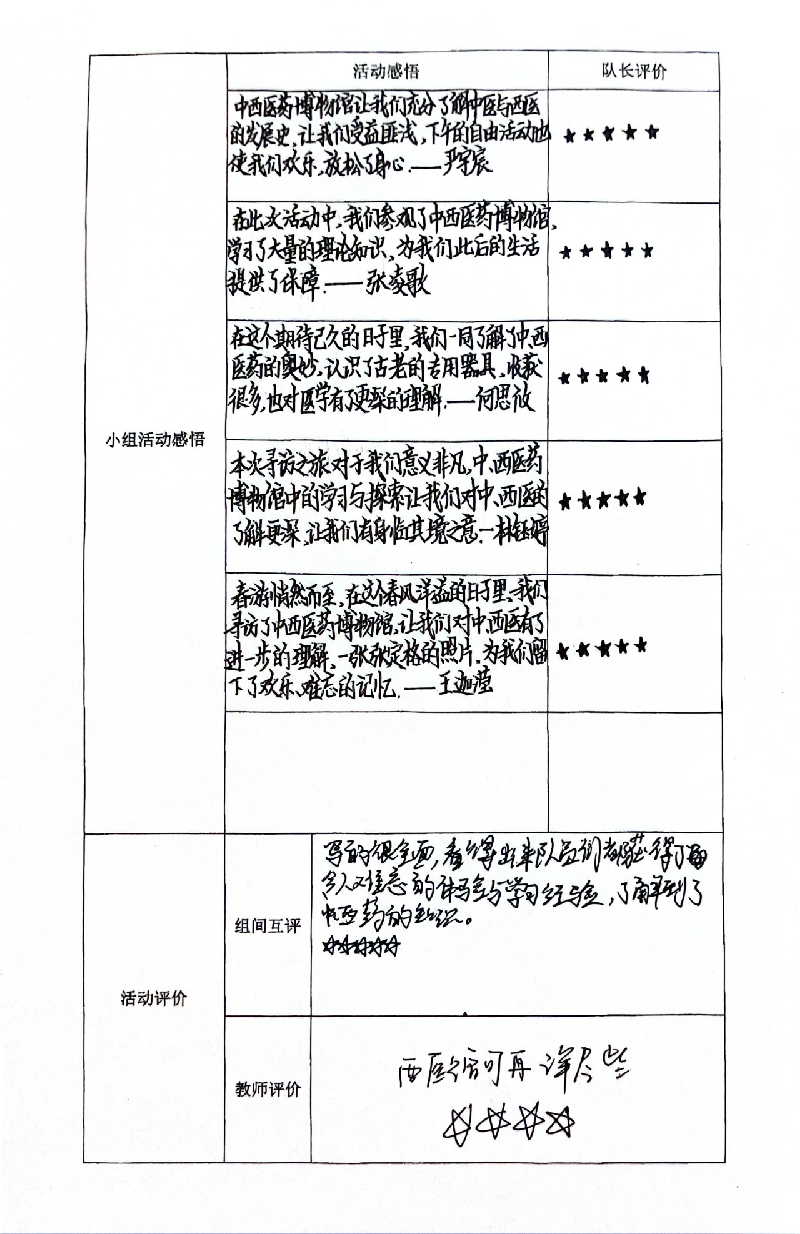 活动感悟
队长评价
小组活动感悟
中西医药博物馆让我们充分了解中医与西医
的发展史,让我们受益匪浅,下午的自由活动也
使我们欢乐,放松了身心.——严宇宸
★★★★★
在此次活动中,我们参观了中西医药博物馆,
学习了大量的理论知识,为我们此后的生活
提供了保障.——张凌歌
★★★★★
在这个期待已久的日子里,我们一同了解了中、西
医药的奥妙,认识了古老的专用器具,收获
很多,也对医学有了更深的理解.——何思
★★★★★
本次寻访之旅对于我们意义非凡,中、西医药
博物馆中的学习与探索让我们对中、西医药
了解更深,让我们有身临其境之意.—林钰婷
★★★★★
春游悄然而至,在这个春风洋溢的日子里,我们
寻访了中西医药博物馆,让我们对中、西医有了
进一步的理解,一张张定格的照片,为我们留
下了欢乐、难忘的记忆.——王迦滢
★★★★★
活动评价
组间互评
写的很全面,看得出来队员们都获得了
令人难忘的体验与学习经验,了解到了
中西药的知识。
☆☆☆☆☆
教师评价
西医馆可再详尽些
☆☆☆☆